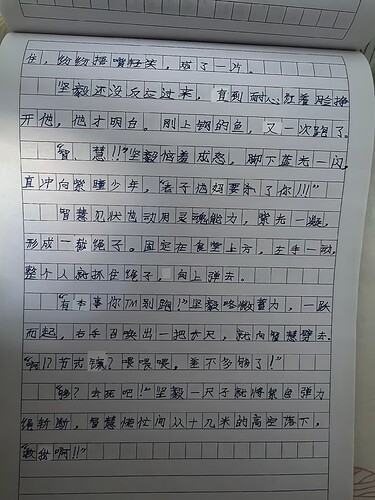 住，纷纷捂嘴轻笑，成了一片。
坚毅还没反应过来，直到耐人红着脸推
开他，他才明白。刚上钩的鱼，又一次跑了。
“智、慧!!”坚毅恼羞成怒，脚下蓝光一闪，
直冲向紫瞳少年，“老子他妈要杀了你!!!”
智慧见状也动用灵魂能力，紫光一凝，
形成一散绳子。固定在食堂上方，左手一动，
整个人就抓住绳子，向上弹去。
“有本事你TM别跑!”坚毅略微蓄力，一跃
而起，右手召唤出一把大尺，就向智慧劈去。
“啊!?节式镰？喂喂喂，差不多够了!”
“够？去死吧!”坚毅一尺子就将紫色弹力
绳斩断，智慧慌忙间从十几米的高空落下，
“救我啊!!”